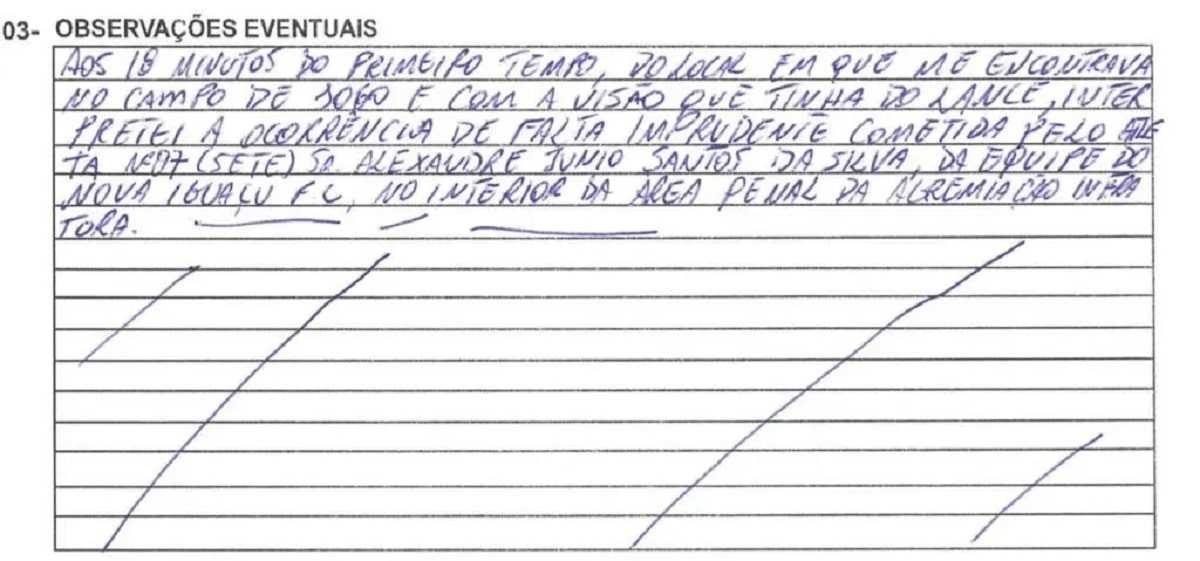 03- OBSERVAÇÕES EVENTUAIS
AOS 18 MINUTOS DO PRIMEIRO TEMPO, DO LOCAL EM QUE ME ENCONTRAVA
NO CAMPO DE JOGO E COM A VISÃO QUE TINHA DO LANCE, INTER
PRETEI A OCORRÊNCIA DE FALTA IMPRUDENTE COMETIDA PELO ATLE
TA Nº07 (SETE) SR. ALEXANDRE JUNIO SANTOS DA SILVA, DA EQUIPE DO
NOVA IGUAÇU F C, NO INTERIOR DA ÁREA PENAL DA AGREMIAÇÃO INFRA
TORA.